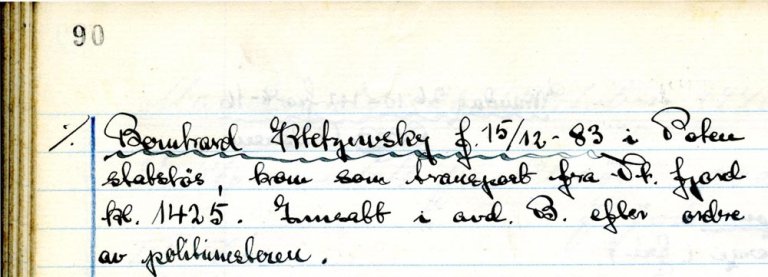 90
./. Bernhard Kletzewsky f. 15/12-83 i Polen
statsløs, kom som transport fra St. fjord
kl. 1425. Innsatt i avd. B. efter ordre
av politimesteren.